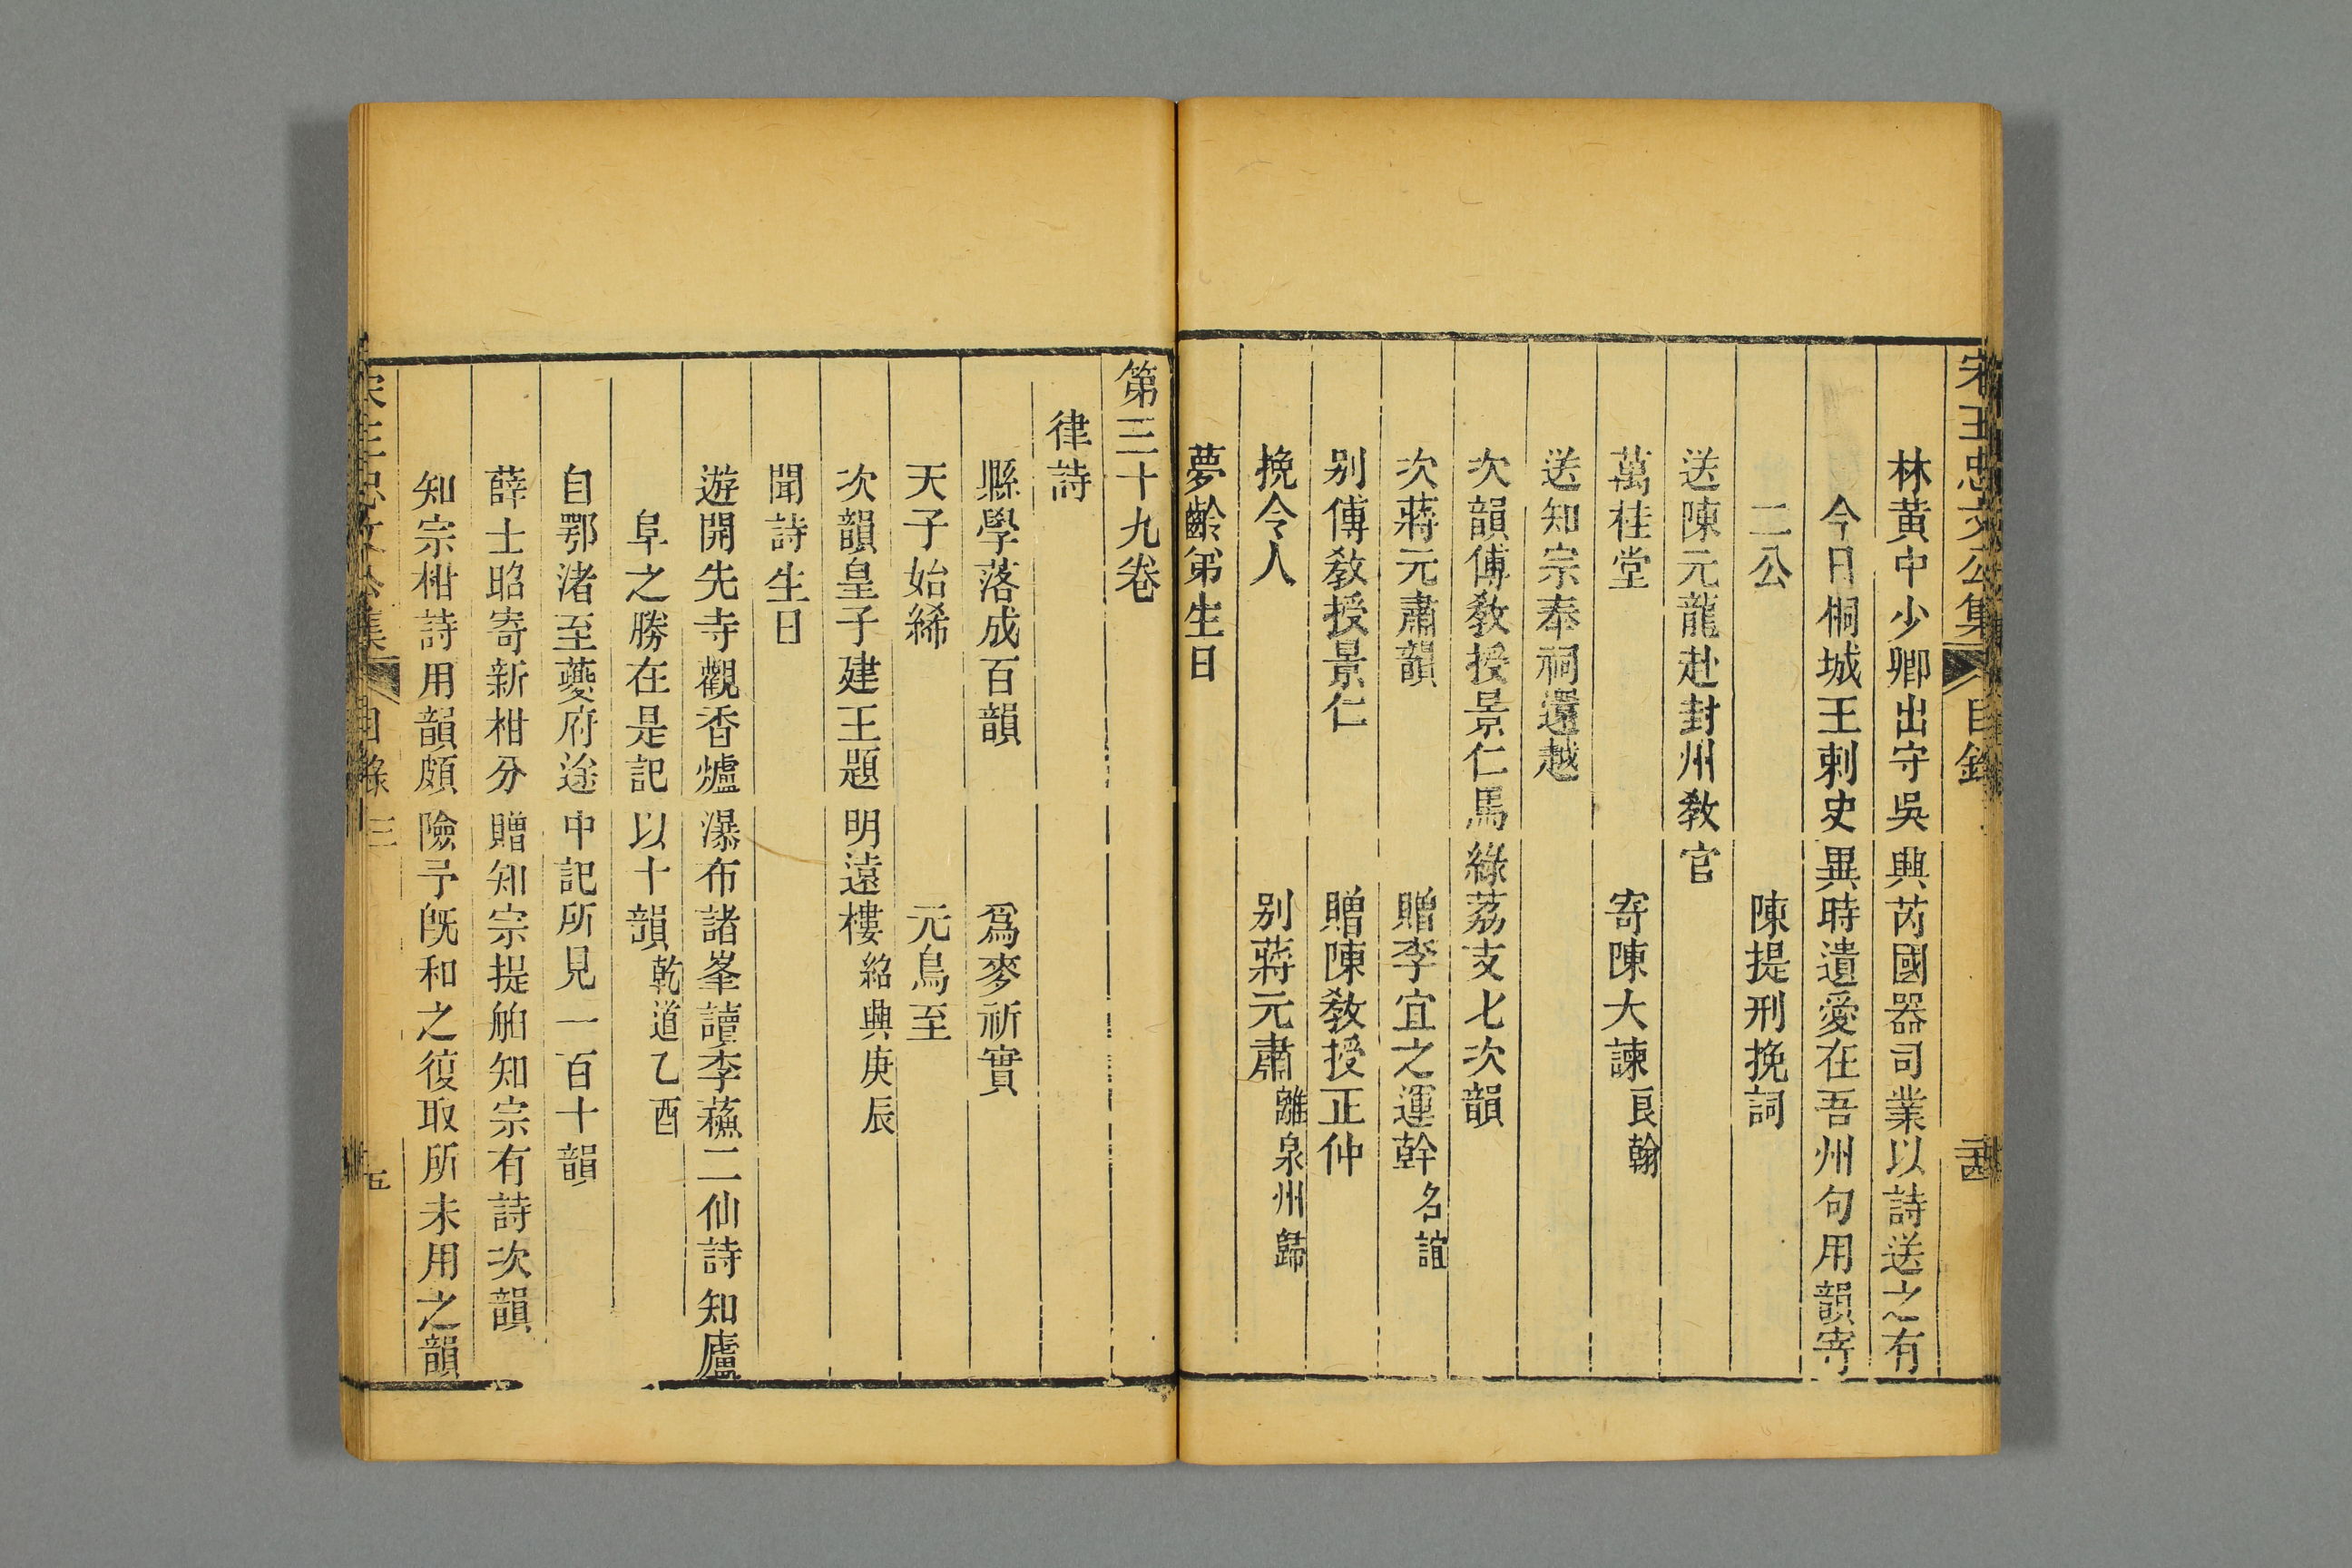 宋王忠文公集 目錄
林黃中少卿出守吳興芮國器司業以詩送之有
今日桐城王刺史異時遺愛在吾州句用韻寄
二公 陳提刑挽詞
送陳元龍赴封州教官
萬桂堂 寄陳大諫良翰
送知宗奉祠還越
次韻傅教授景仁馬綠荔支七次韻
次蔣元肅韻 贈李宜之運幹名誼
别傅教授景仁 贈陳教授正仲
挽令人 别蔣元肅離泉州歸
夢齡弟生日
第三十九卷
律詩
縣學落成百韻 爲麥祈實
天子始絺 元鳥至
次韻皇子建王題明遠樓紹興庚辰
聞詩生日
遊開先寺觀香爐瀑布諸峯讀李蘓二仙詩知廬
阜之勝在是記以十韻乾道乙酉
自鄂渚至夔府途中記所見一百十韻
薛士昭寄新柑分贈知宗提舶知宗有詩次韻
知宗柑詩用韻頗險予旣和之復取所未用之韻
集 目錄 五